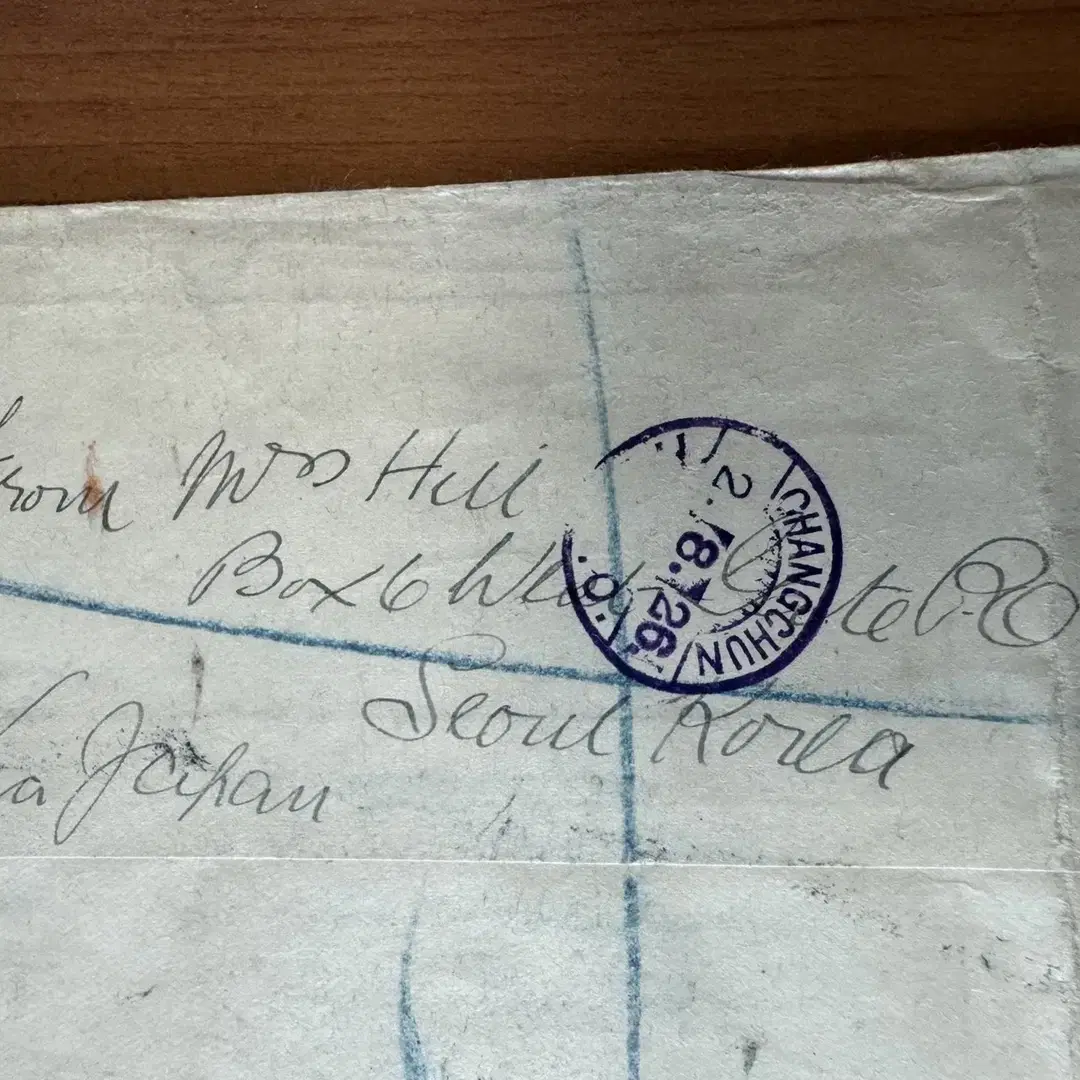 From Mrs Hill
Box 6 West Gate P.O
Seoul Korea
Via Japan
CHANGCHUN
2.8.26.
I.
.O.